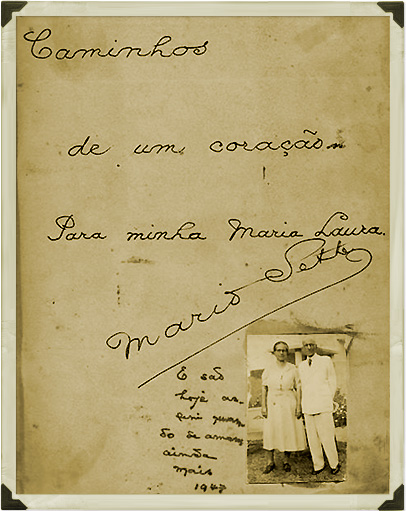 Caminhos
de um coração
Para minha Maria Laura.
Mario Sette
E são
hoje as-
sim quan-
do se amam
ainda
mais
1947